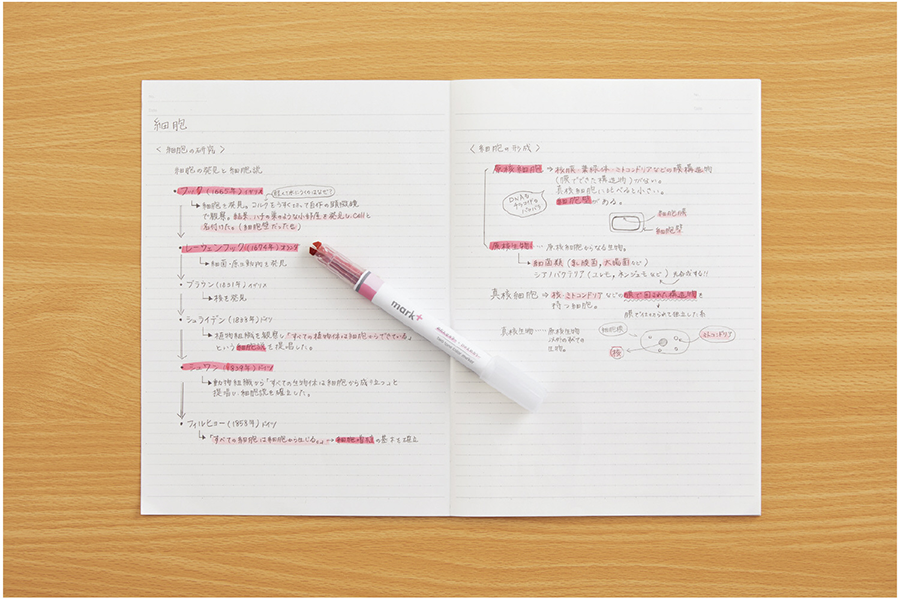 細胞
〈 細胞の研究 〉
細胞の発見と細胞説
・フック (1665年) イギリス
↳細胞を発見。コルクをうすく切って自作の顕微鏡
で観察。結果、ハチの巣のような小部屋を発見し、cellと
名付けた。(細胞壁だった)
・レーウェンフック (1674年) オランダ
↳細菌・原生動物を発見
・ブラウン (1831年) イギリス
↳核を発見
・シュライデン (1838年) ドイツ
↳植物組織を観察し「すべての植物体は細胞からできている」
という細胞説を提唱した。
・シュワン (1839年) ドイツ
↳動物組織から「すべての生物体は細胞から成り立つ」と
提唱し、細胞説を確立した。
・フィルヒョー (1858年) ドイツ
↳「すべての細胞は細胞から生じる。」→ の基本を確立
mark+
〈 細胞の形成 〉
原核細胞 → 核膜・葉緑体・ミトコンドリアなどの膜構造物
(膜でできた構造物) がない。
真核細胞に比べると小さい。
細胞壁がある。
DNAは
細胞膜
細胞壁
原核生物 … 原核細胞からなる生物。
↳細菌類 (乳酸菌, 大腸菌など)
シアノバクテリア (ユレモ, ネンジュモなど)
真核細胞 → 核・ミトコンドリアなどの膜で囲まれた構造物を
持つ細胞。
真核生物 … 原核生物
以外の全ての
生物。
細胞膜
ミトコンドリア
核